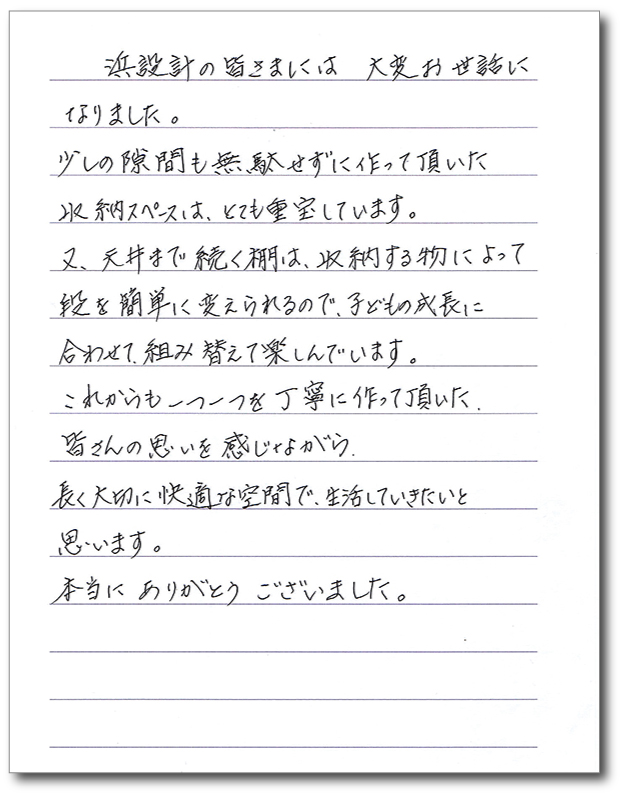 浜設計の皆さまには 大変お世話に
なりました。
少しの隙間も無駄せずに作って頂いた
収納スペースは、とても重宝しています。
又、天井まで続く棚は、収納する物によって
段を簡単に変えられるので、子どもの成長に
合わせて、組み替えて楽しんでいます。
これからも一つ一つを丁寧に作って頂いた、
皆さんの思いを感じながら、
長く大切に快適な空間で、生活していきたいと
思います。
本当に ありがとう ございました。